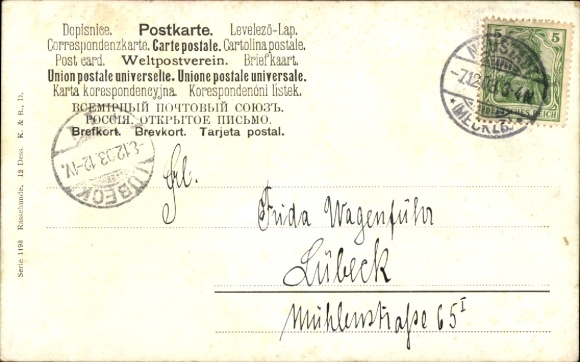 Dopisnice. Postkarte. Levelező-Lap.
Correspondenzkarte. Carte postale. Cartolina postale.
Post card. Weltpostverein. Briefkaart.
Union postale universelle. Unione postale universale.
Karta korespondencyjna. Korespondenční lístek.
ВСЕМІРНЫЙ ПОЧТОВЫЙ СОЮЗЪ.
РОССІЯ. ОТКРЫТОЕ ПИСЬМО.
Brefkort. Brevkort. Tarjeta postal.
5 5
DEUTSCHES REICH
-7.12.03.
*(MECKLB)
LÜBECK
8.12.03.12-1V.
Frl.
Frida Wagenführ
Lübeck
Mühlenstraße 65 I
Serie 1198 Rassehunde, 12 Dess. K. & B., D.